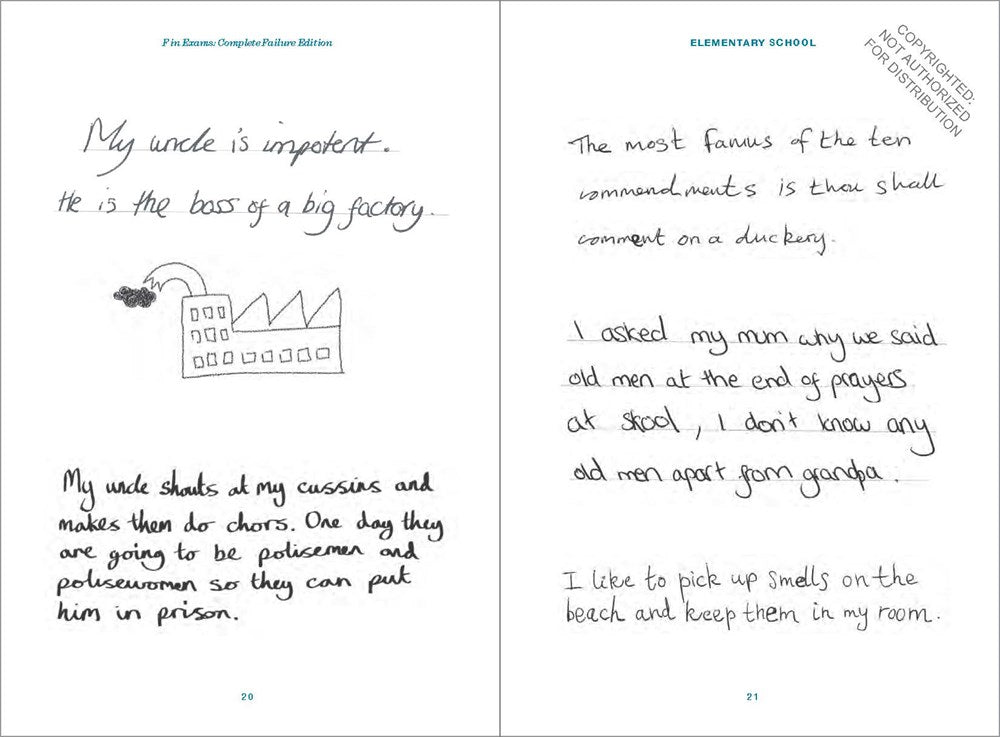 F in Exams: Complete Failure Edition
My uncle is impotent.
He is the boss of a big factory.
My uncle shouts at my cussins and
makes them do chors. One day they
are going to be polisemen and
polisewomen so they can put
him in prison.
20
ELEMENTARY SCHOOL
COPYRIGHTED:
NOT AUTHORIZED
FOR DISTRIBUTION
The most famus of the ten
commendments is thou shall
comment on a duckery.
I asked my mum why we said
old men at the end of prayers
at skool, I don't know any
old men apart from grandpa.
I like to pick up smells on the
beach and keep them in my room.
21